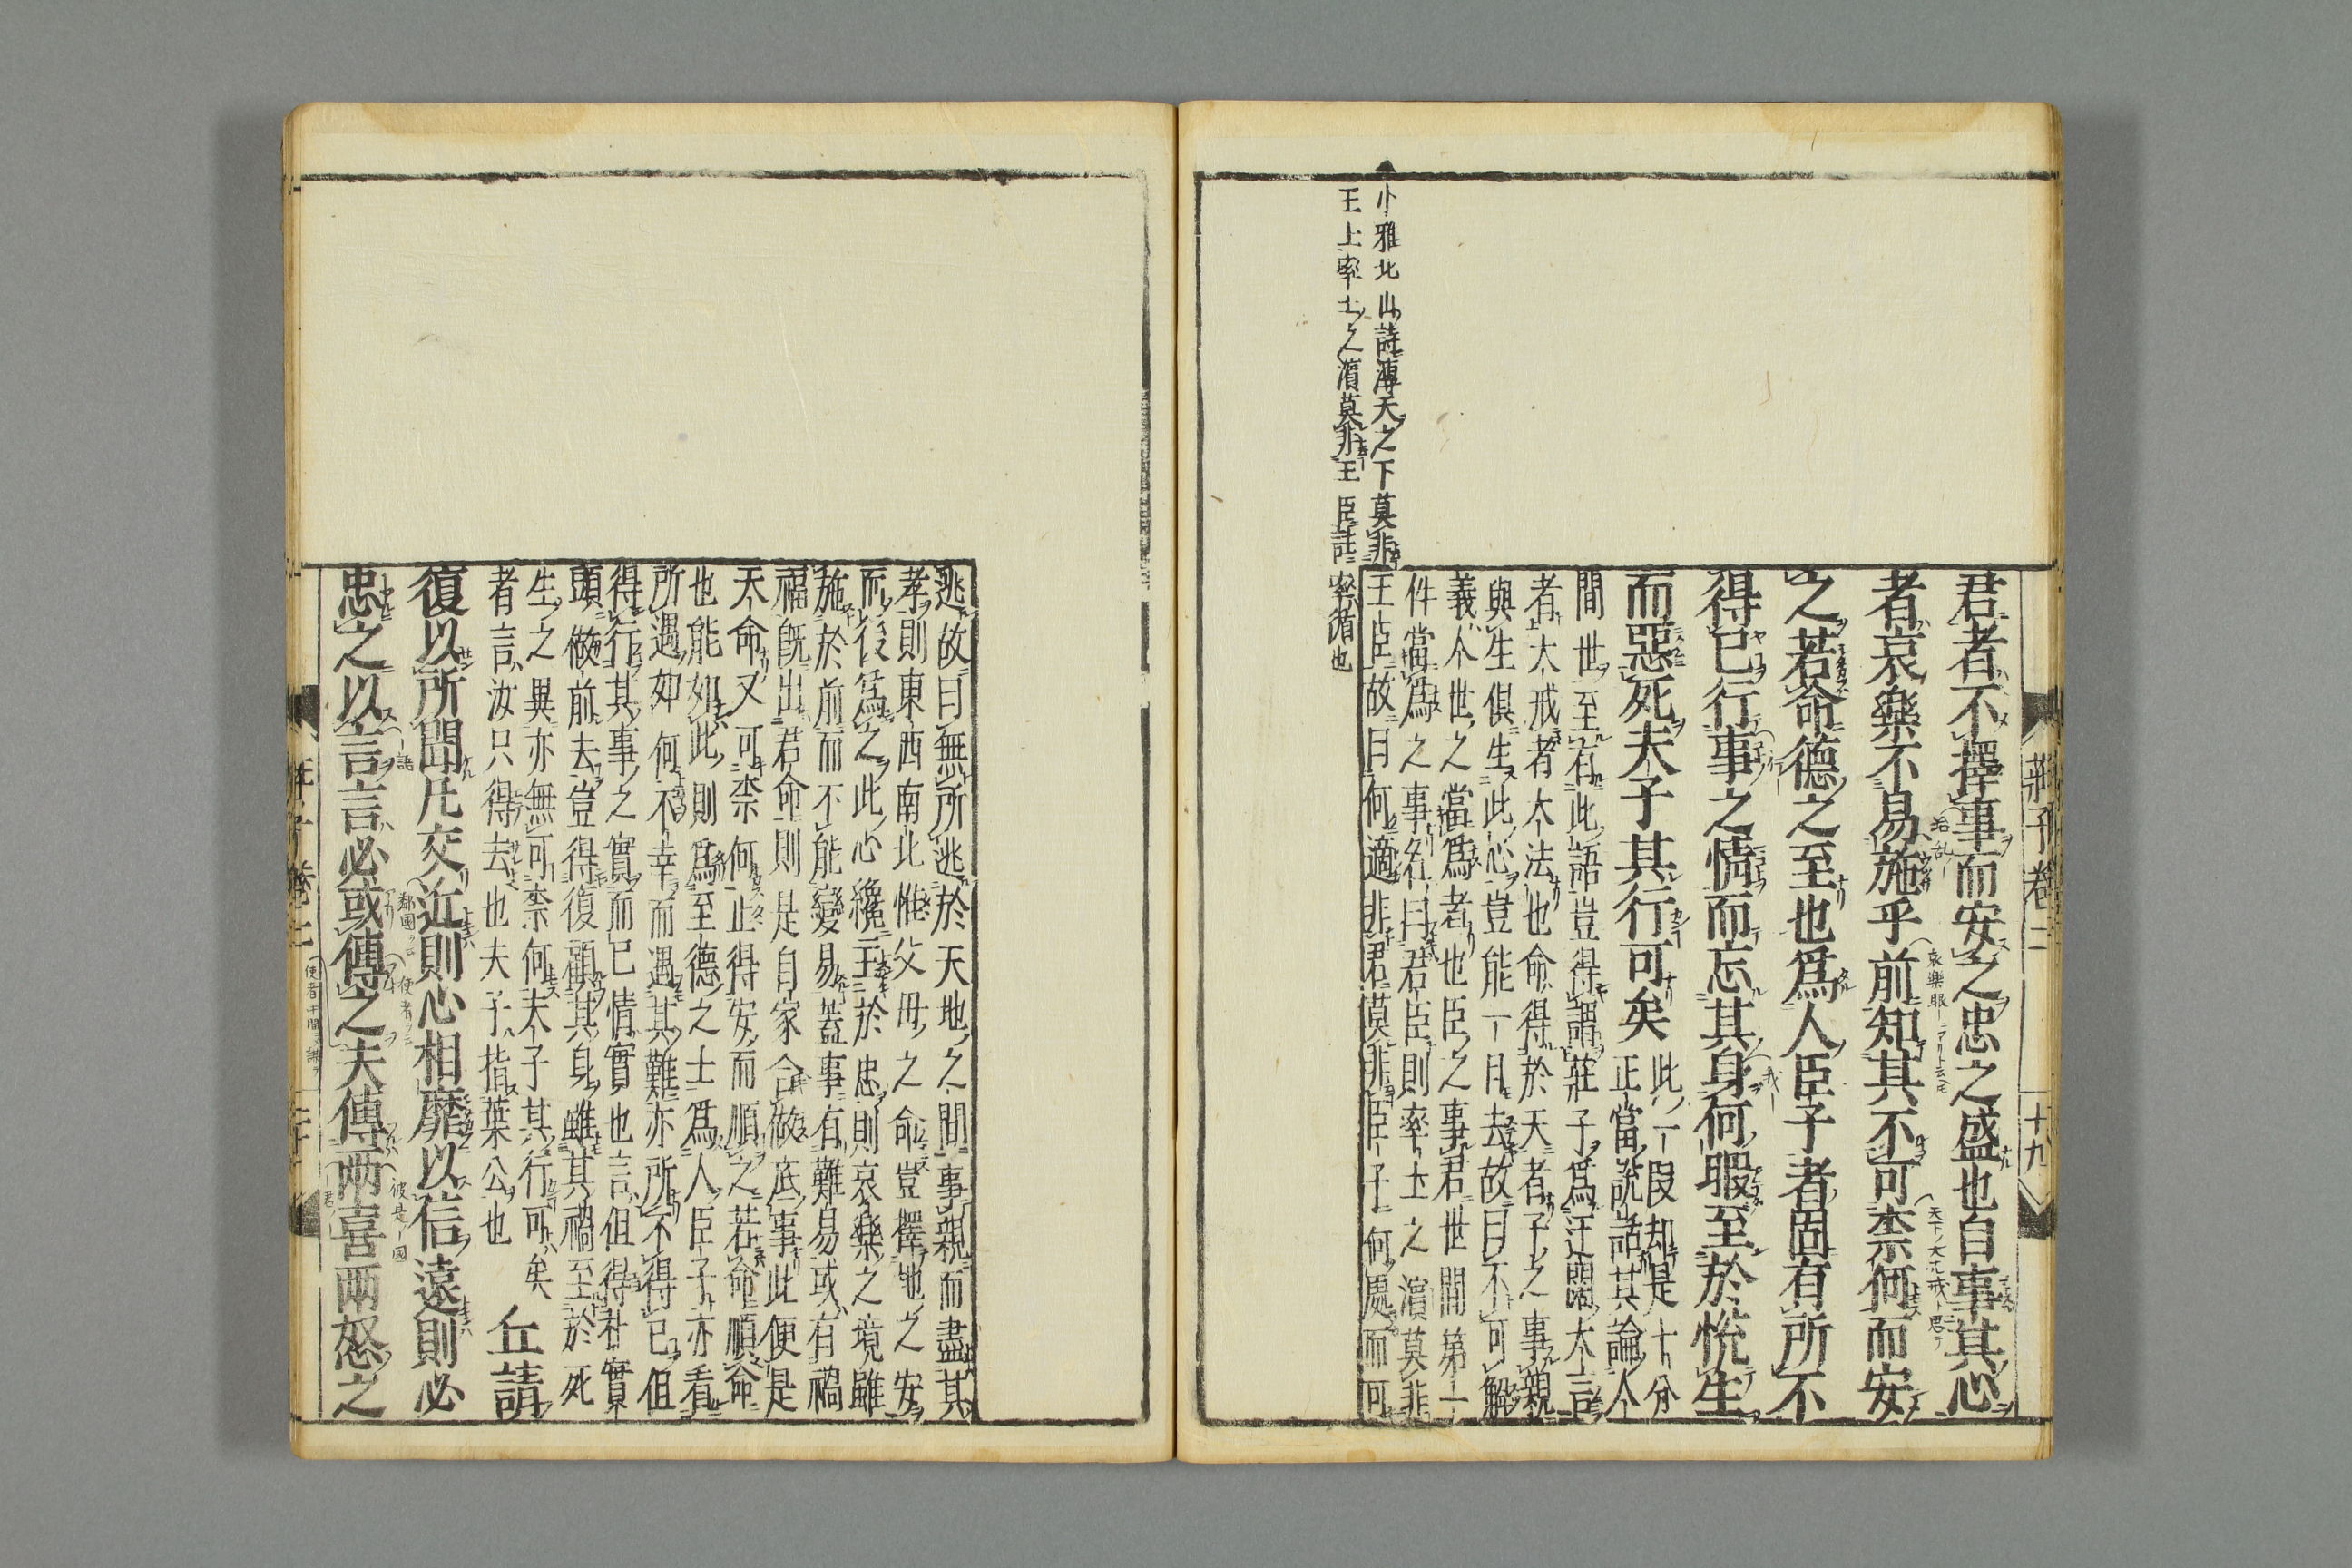 莊子卷二
十九
君者不擇事而安之忠之盛也自事其心
者哀樂不易施乎前知其不可柰何而安
之若命德之至也爲人臣子者固有所不
得已行事之情而忘其身何暇至於悅生
而惡死夫子其行可矣
此一段却是十分
正當說話其論人
間世至有此語豈得謂莊子爲迂闊大言
者大戒者大法也命得於天者子之事親
與生俱生此心豈能一日去故曰不可解
義人世之當爲者也臣之事君世間第一
件當爲之事名曰君臣則率土之濱莫非
王臣故曰何適非君莫非臣子何處而可
小雅北山詩溥天之下莫非
王土率土之濱莫非王臣註率循也
逃故曰無所逃於天地之間事親而盡其
孝則東西南北惟父母之命豈擇地之安
而後爲之此心纔主於忠則哀樂之境雖
施於前而不能變易蓋事有難易或有禍
福旣出君命則是自家合做底事此便是
天命又可柰何止得安而順之若命順命
也能如此則爲至德之士爲人臣子亦看
所遇如何不幸而遇其難亦所不得已但
得行其事之實而已情實也言但得社實
頭做前去豈得復顧其身雖其禍至於死
生之異亦無可柰何夫子其行可矣
者言汝只得去也夫子指葉公也
丘請
復以所聞凡交近則必相靡以信遠則必
忠之以言言必或傳之夫傳兩喜兩怒之
莊子卷二
二十